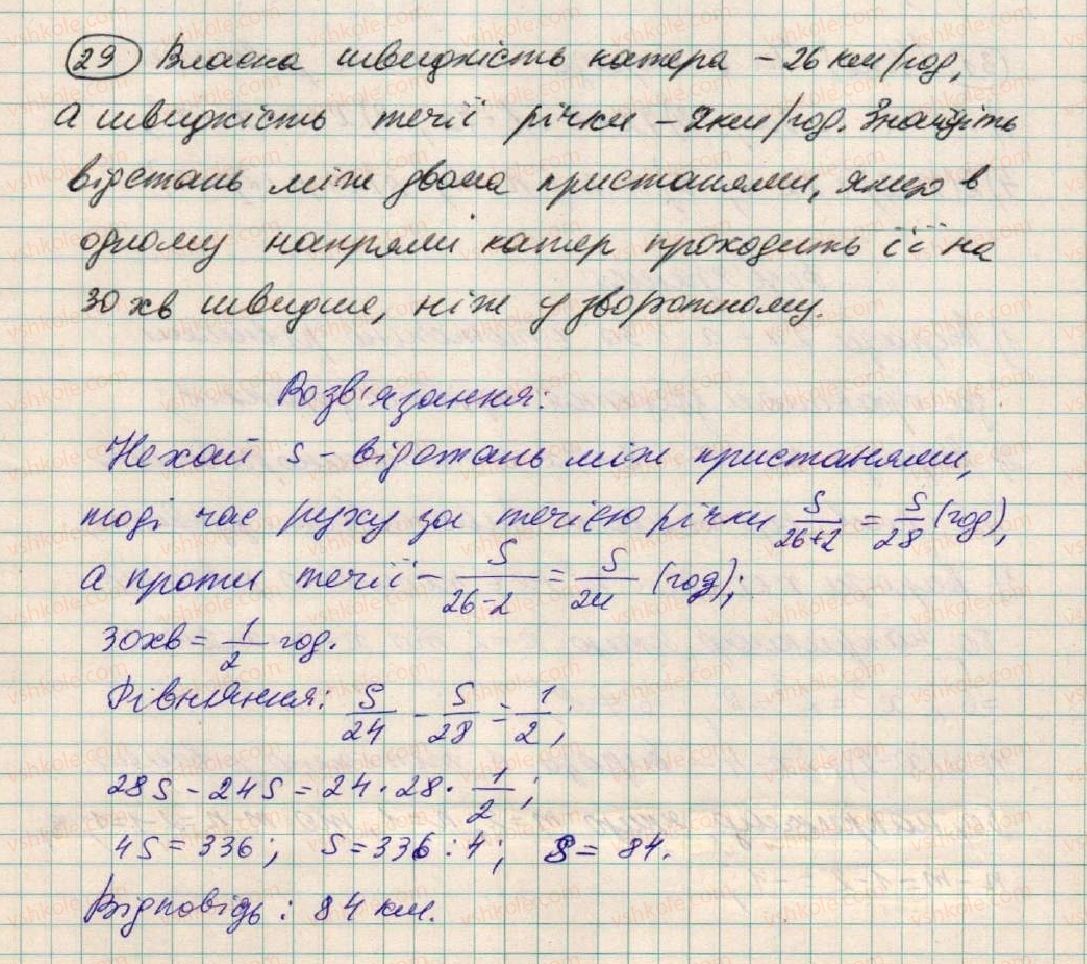 29 Власна швидкість катера – 26 км/год,
а швидкість течії річки – 2км/год. Знайдіть
відстань між двома пристанями, якщо в
одному напрямі катер проходить її на
30 хв швидше, ніж у зворотному.
Розв'язання:
Нехай S – відстань між пристанями,
тоді час руху за течією річки S/26+2 = S/28 (год),
а проти течії – S/26-2 = S/24 (год);
30хв = 1/2 год.
Рівняння: S/24 - S/28 = 1/2;
28S - 24S = 24·28·1/2;
4S = 336; S = 336:4; S = 84.
Відповідь: 84 км.